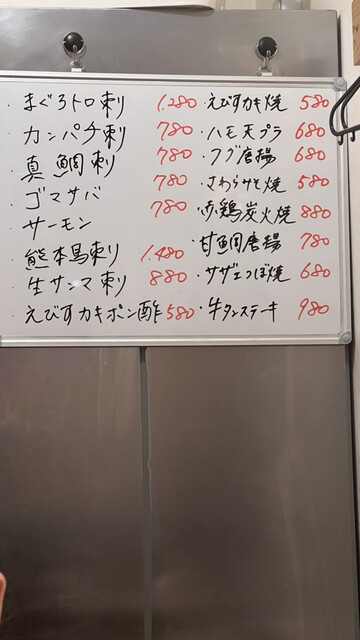 ・まぐろトロ刺 1,280
・カンパチ刺 780
・真鯛刺 780
・ゴマサバ 780
・サーモン 780
・熊本馬刺 1,480
・生サンマ刺 880
・えびすカキポン酢 580
・えびすカキ焼 580
・ハモ天プラ 680
・フグ唐揚 680
・さわらみそ焼 580
・赤鶏炭火焼 880
・甘鯛唐揚 780
・サザエつぼ焼 680
・牛タンステーキ 980